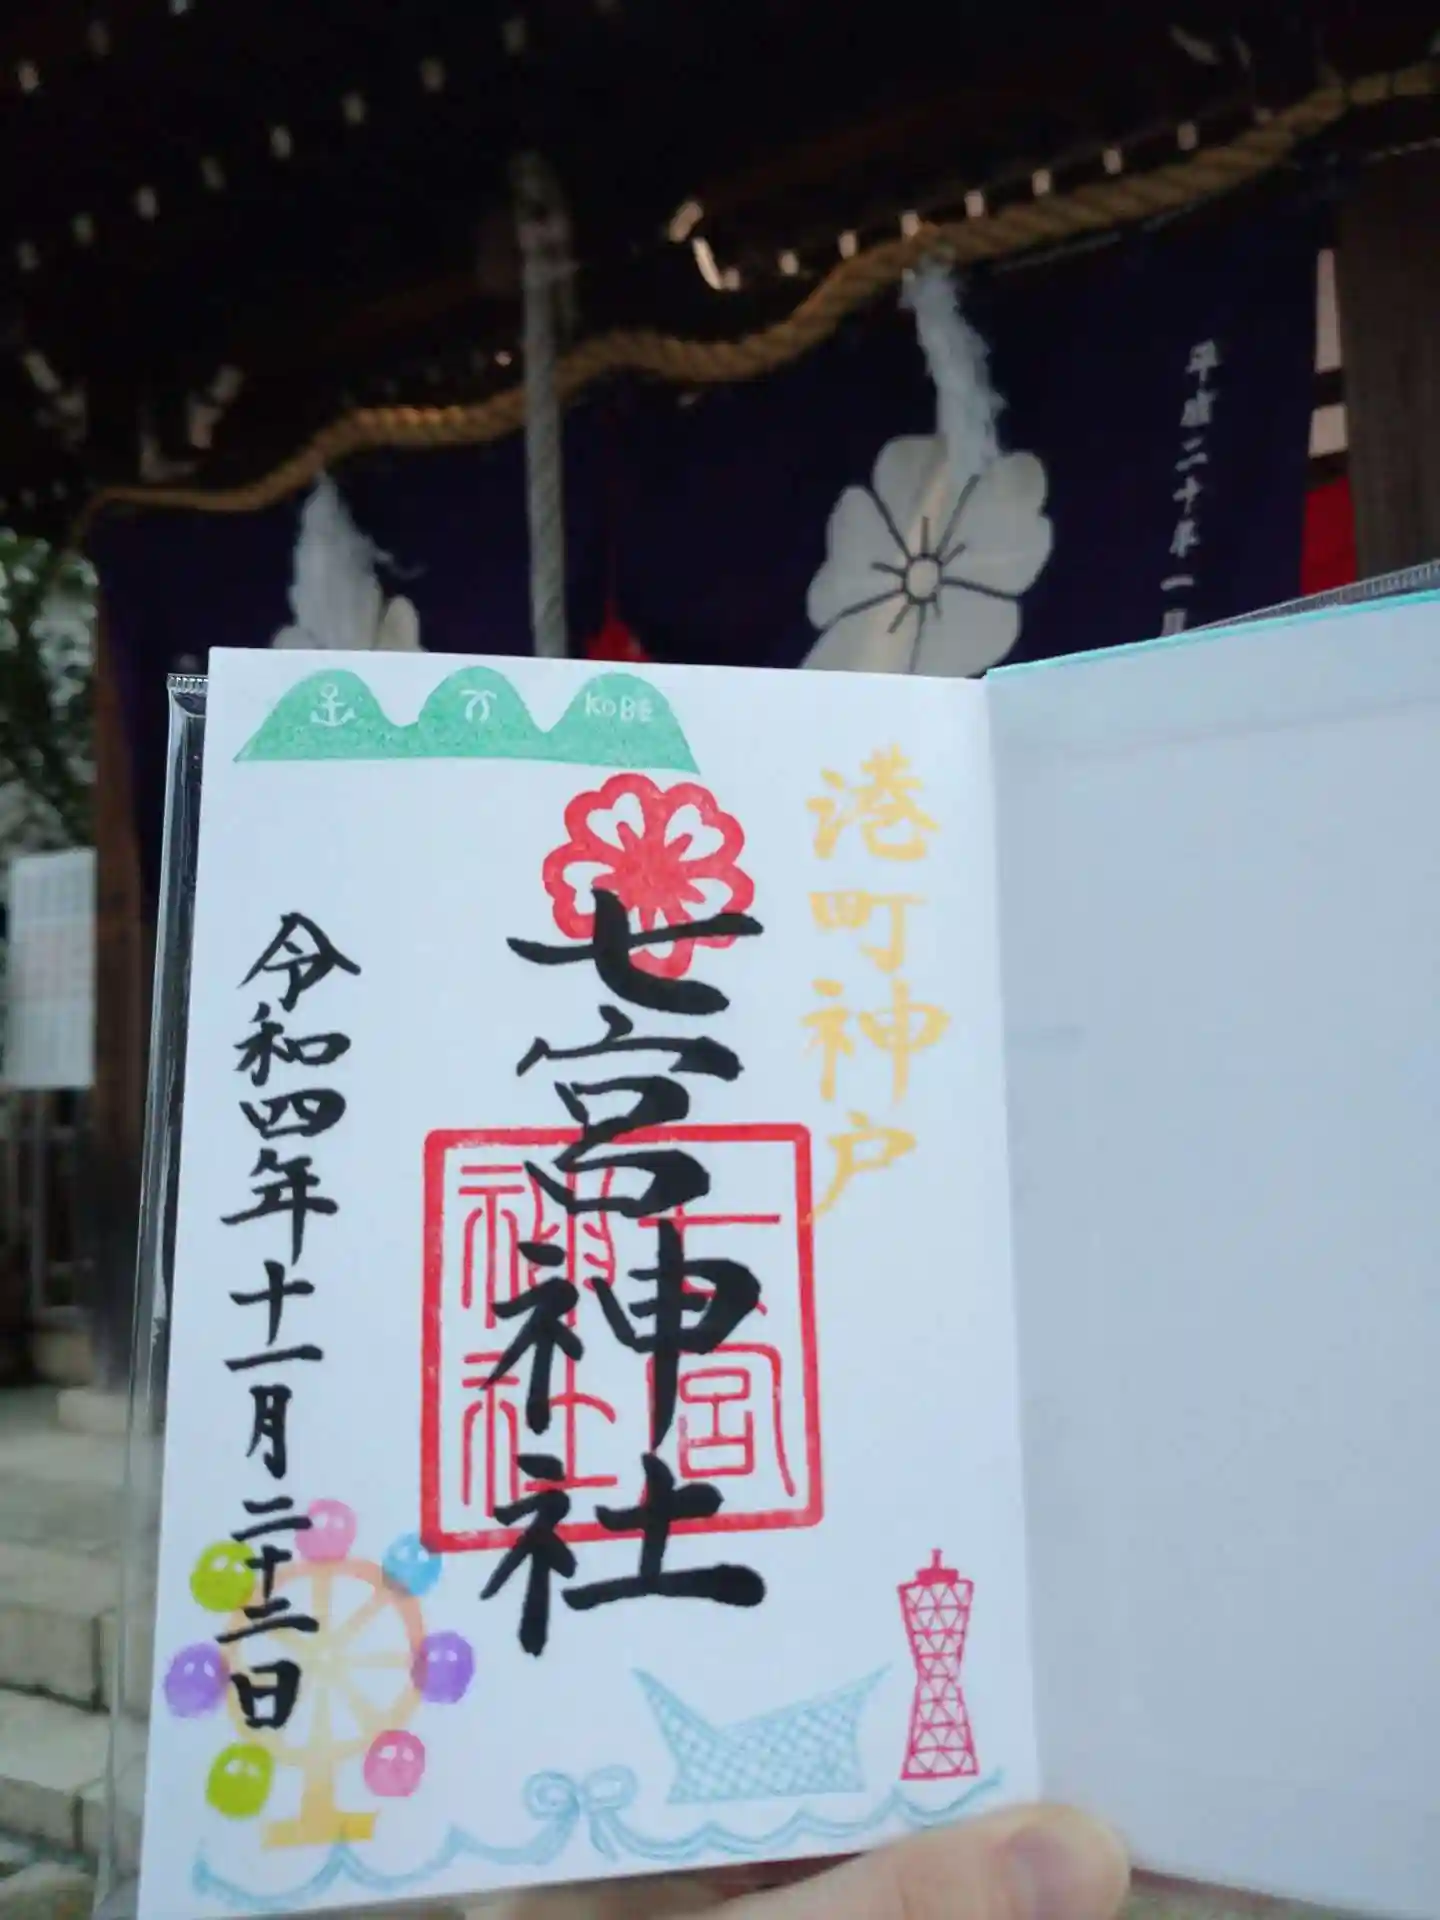 平成二十年一月
KOBE
港町神戸
七宮神社
七宮神社
令和四年十一月二十三日